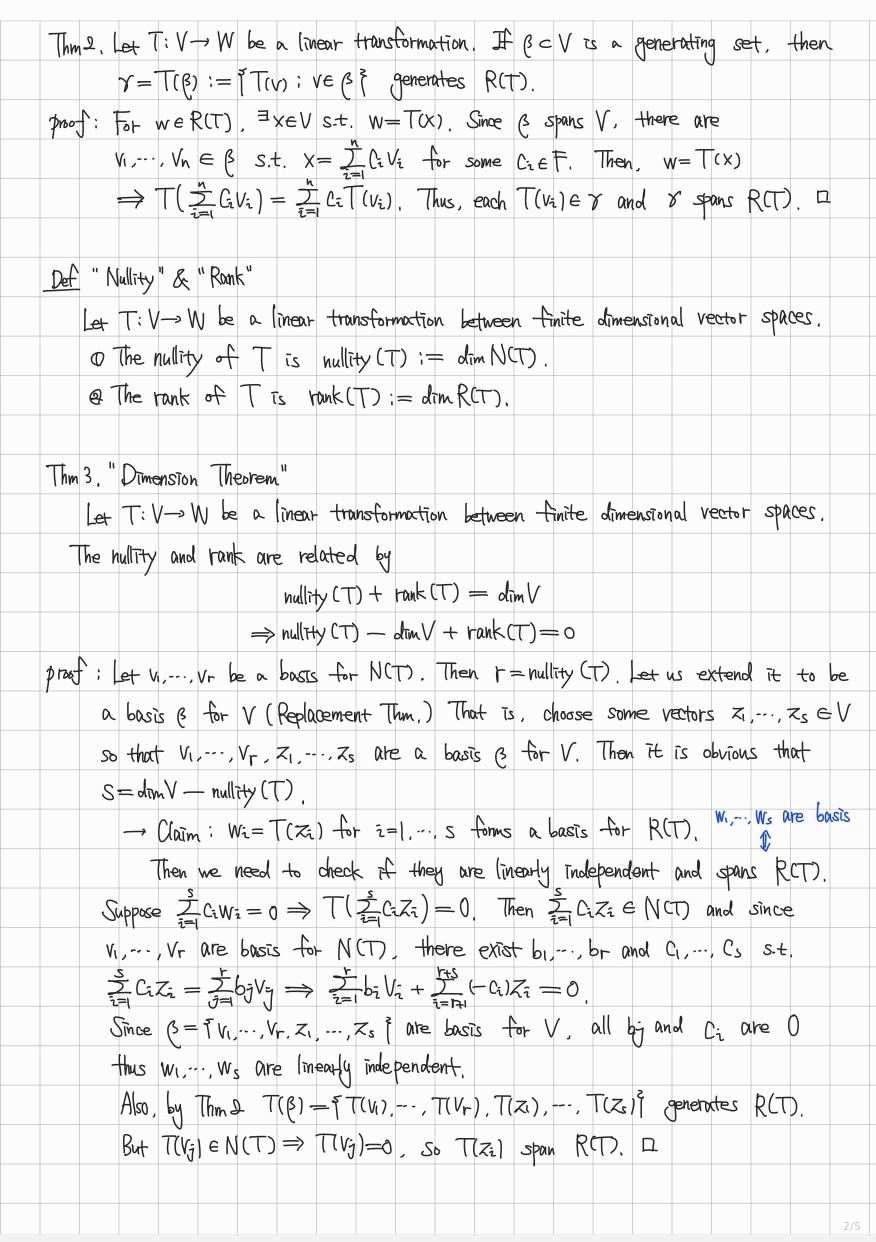 Thm 2. Let T: V → W be a linear transformation. If β ⊂ V is a generating set, then
γ = T(β) := {T(v) ; v ∈ β} generates R(T).
proof : For w ∈ R(T), ∃x ∈ V s.t. w = T(x). Since β spans V, there are
v₁, ⋯, vₙ ∈ β s.t. x = ∑_{i=1}^{n} cᵢvᵢ for some cᵢ ∈ F. Then, w = T(x)
⟹ T(∑_{i=1}^{n} cᵢvᵢ) = ∑_{i=1}^{n} cᵢT(vᵢ). Thus, each T(vᵢ) ∈ γ and γ spans R(T). □
Def "Nullity" & "Rank"
Let T: V → W be a linear transformation between finite dimensional vector spaces.
① The nullity of T is nullity(T) := dim N(T).
② The rank of T is rank(T) := dim R(T).
Thm 3. "Dimension Theorem"
Let T: V → W be a linear transformation between finite dimensional vector spaces.
The nullity and rank are related by
nullity(T) + rank(T) = dim V
⟹ nullity(T) − dim V + rank(T) = 0
proof : Let v₁, ⋯, vᵣ be a basis for N(T). Then r = nullity(T). Let us extend it to be
a basis β for V (Replacement Thm.) That is, choose some vectors z₁, ⋯, zₛ ∈ V
so that v₁, ⋯, vᵣ, z₁, ⋯, zₛ are a basis β for V. Then it is obvious that
s = dim V − nullity(T).
→ Claim : wᵢ = T(zᵢ) for i=1, ⋯, s forms a basis for R(T).
w₁, ⋯, wₛ are basis
⇕
Then we need to check if they are linearly independent and spans R(T).
Suppose ∑_{i=1}^{s} cᵢwᵢ = 0 ⟹ T(∑_{i=1}^{s} cᵢzᵢ) = 0. Then ∑_{i=1}^{s} cᵢzᵢ ∈ N(T) and since
v₁, ⋯, vᵣ are basis for N(T), there exist b₁, ⋯, bᵣ and c₁, ⋯, cₛ s.t.
∑_{i=1}^{s} cᵢzᵢ = ∑_{j=1}^{r} bⱼvⱼ ⟹ ∑_{i=1}^{r} bᵢvᵢ + ∑_{i=r+1}^{r+s} (−cᵢ)zᵢ = 0.
Since β = {v₁, ⋯, vᵣ, z₁, ⋯, zₛ} are basis for V, all bⱼ and cᵢ are 0
thus w₁, ⋯, wₛ are linearly independent.
Also, by Thm 2 T(β) = {T(v₁), ⋯, T(vᵣ), T(z₁), ⋯, T(zₛ)} generates R(T).
But T(vⱼ) ∈ N(T) ⟹ T(vⱼ) = 0, so T(zᵢ) span R(T). □
2/5